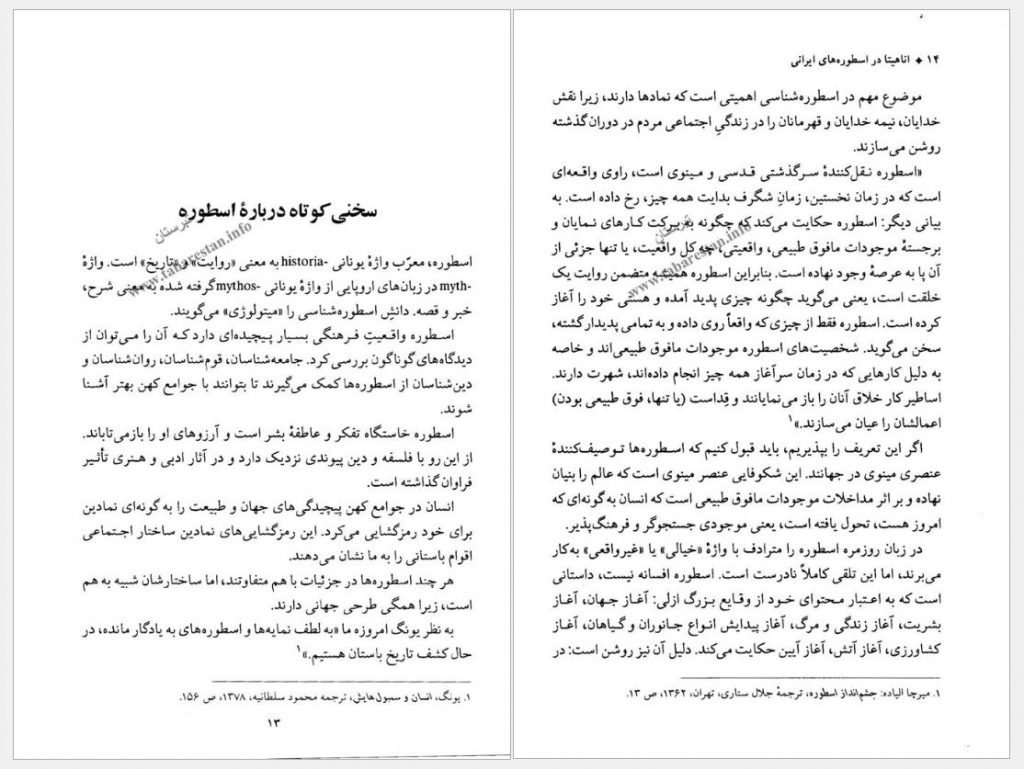 سخنی کوتاه دربارهٔ اسطوره
تبرستان
www.tabarestan.info
اسطوره، معرّب واژهٔ یونانی historia- به معنی «روایت» و «تاریخ» است. واژهٔ
myth- در زبان‌های اروپایی از واژهٔ یونانی mythos- گرفته شده به معنی شرح،
خبر و قصه. دانشِ اسطوره‌شناسی را «میتولوژی» می‌گویند.
اسطوره واقعیتِ فرهنگی بسیار پیچیده‌ای دارد که آن را می‌توان از
دیدگاه‌های گوناگون بررسی کرد. جامعه‌شناسان، قوم‌شناسان، روان‌شناسان و
دین‌شناسان از اسطوره‌ها کمک می‌گیرند تا بتوانند با جوامع کهن بهتر آشنا
شوند.
اسطوره خاستگاه تفکر و عاطفهٔ بشر است و آرزوهای او را بازمی‌تاباند.
از این رو با فلسفه و دین پیوندی نزدیک دارد و در آثار ادبی و هنری تأثیر
فراوان گذاشته است.
انسان در جوامع کهن پیچیدگی‌های جهان و طبیعت را به گونه‌ای نمادین
برای خود رمزگشایی می‌کرد. این رمزگشایی‌های نمادین ساختار اجتماعی
اقوام باستانی را به ما نشان می‌دهند.
هر چند اسطوره‌ها در جزئیات با هم متفاوتند، اما ساختارشان شبیه به هم
است، زیرا همگی طرحی جهانی دارند.
به نظر یونگ امروزه ما «به لطف نمایه‌ها و اسطوره‌های به یادگار مانده، در
حال کشف تاریخ باستان هستیم.»۱
۱. یونگ، انسان و سمبول‌هایش، ترجمه محمود سلطانیه، ۱۳۷۸، ص ۱۵۶.
۱۳
۱۴ ♦ اناهیتا در اسطوره‌های ایرانی
موضوع مهم در اسطوره‌شناسی اهمیتی است که نمادها دارند، زیرا نقش
خدایان، نیمه خدایان و قهرمانان را در زندگیِ اجتماعی مردم در دوران گذشته
روشن می‌سازند.
«اسطوره نقل‌کنندهٔ سرگذشتی قدسی و مینوی است، راوی واقعه‌ای
است که در زمان نخستین، زمانِ شگرف بدایت همه چیز، رخ داده است. به
بیانی دیگر: اسطوره حکایت می‌کند که چگونه به برکت کارهای نمایان و
برجستهٔ موجودات مافوق طبیعی، واقعیتی، چه کل واقعیت، یا تنها جزئی از
آن پا به عرصهٔ وجود نهاده است. بنابراین اسطوره همیشه متضمن روایت یک
خلقت است، یعنی می‌گوید چگونه چیزی پدید آمده و هستی خود را آغاز
کرده است. اسطوره فقط از چیزی که واقعاً روی داده و به تمامی پدیدار گشته،
سخن می‌گوید. شخصیت‌های اسطوره موجودات مافوق طبیعی‌اند و خاصه
به دلیل کارهایی که در زمان سرآغاز همه چیز انجام داده‌اند، شهرت دارند.
اساطیر کار خلاق آنان را باز می‌نمایانند و قِداست (یا تنها، فوق طبیعی بودن)
اعمالشان را عیان می‌سازند.»۱
تبرستان
www.tabarestan.info
اگر این تعریف را بپذیریم، باید قبول کنیم که اسطوره‌ها توصیف‌کنندهٔ
عنصری مینوی در جهانند. این شکوفایی عنصر مینوی است که عالم را بنیان
نهاده و بر اثر مداخلات موجودات مافوق طبیعی است که انسان به گونه‌ای که
امروز هست، تحول یافته است، یعنی موجودی جستجوگر و فرهنگ‌پذیر.
در زبان روزمره اسطوره را مترادف با واژهٔ «خیالی» یا «غیرواقعی» به‌کار
می‌برند، اما این تلقی کاملاً نادرست است. اسطوره افسانه نیست، داستانی
است که به اعتبار محتوای خود از وقایع بزرگ ازلی: آغاز جهان، آغاز
بشریت، آغاز زندگی و مرگ، آغاز پیدایش انواع جانوران و گیاهان، آغاز
کشاورزی، آغاز آتش، آغاز آیین حکایت می‌کند. دلیل آن نیز روشن است: در
۱. میرچا الیاده: چشم‌انداز اسطوره، ترجمهٔ جلال ستاری، تهران، ۱۳۶۲، ص ۱۳.